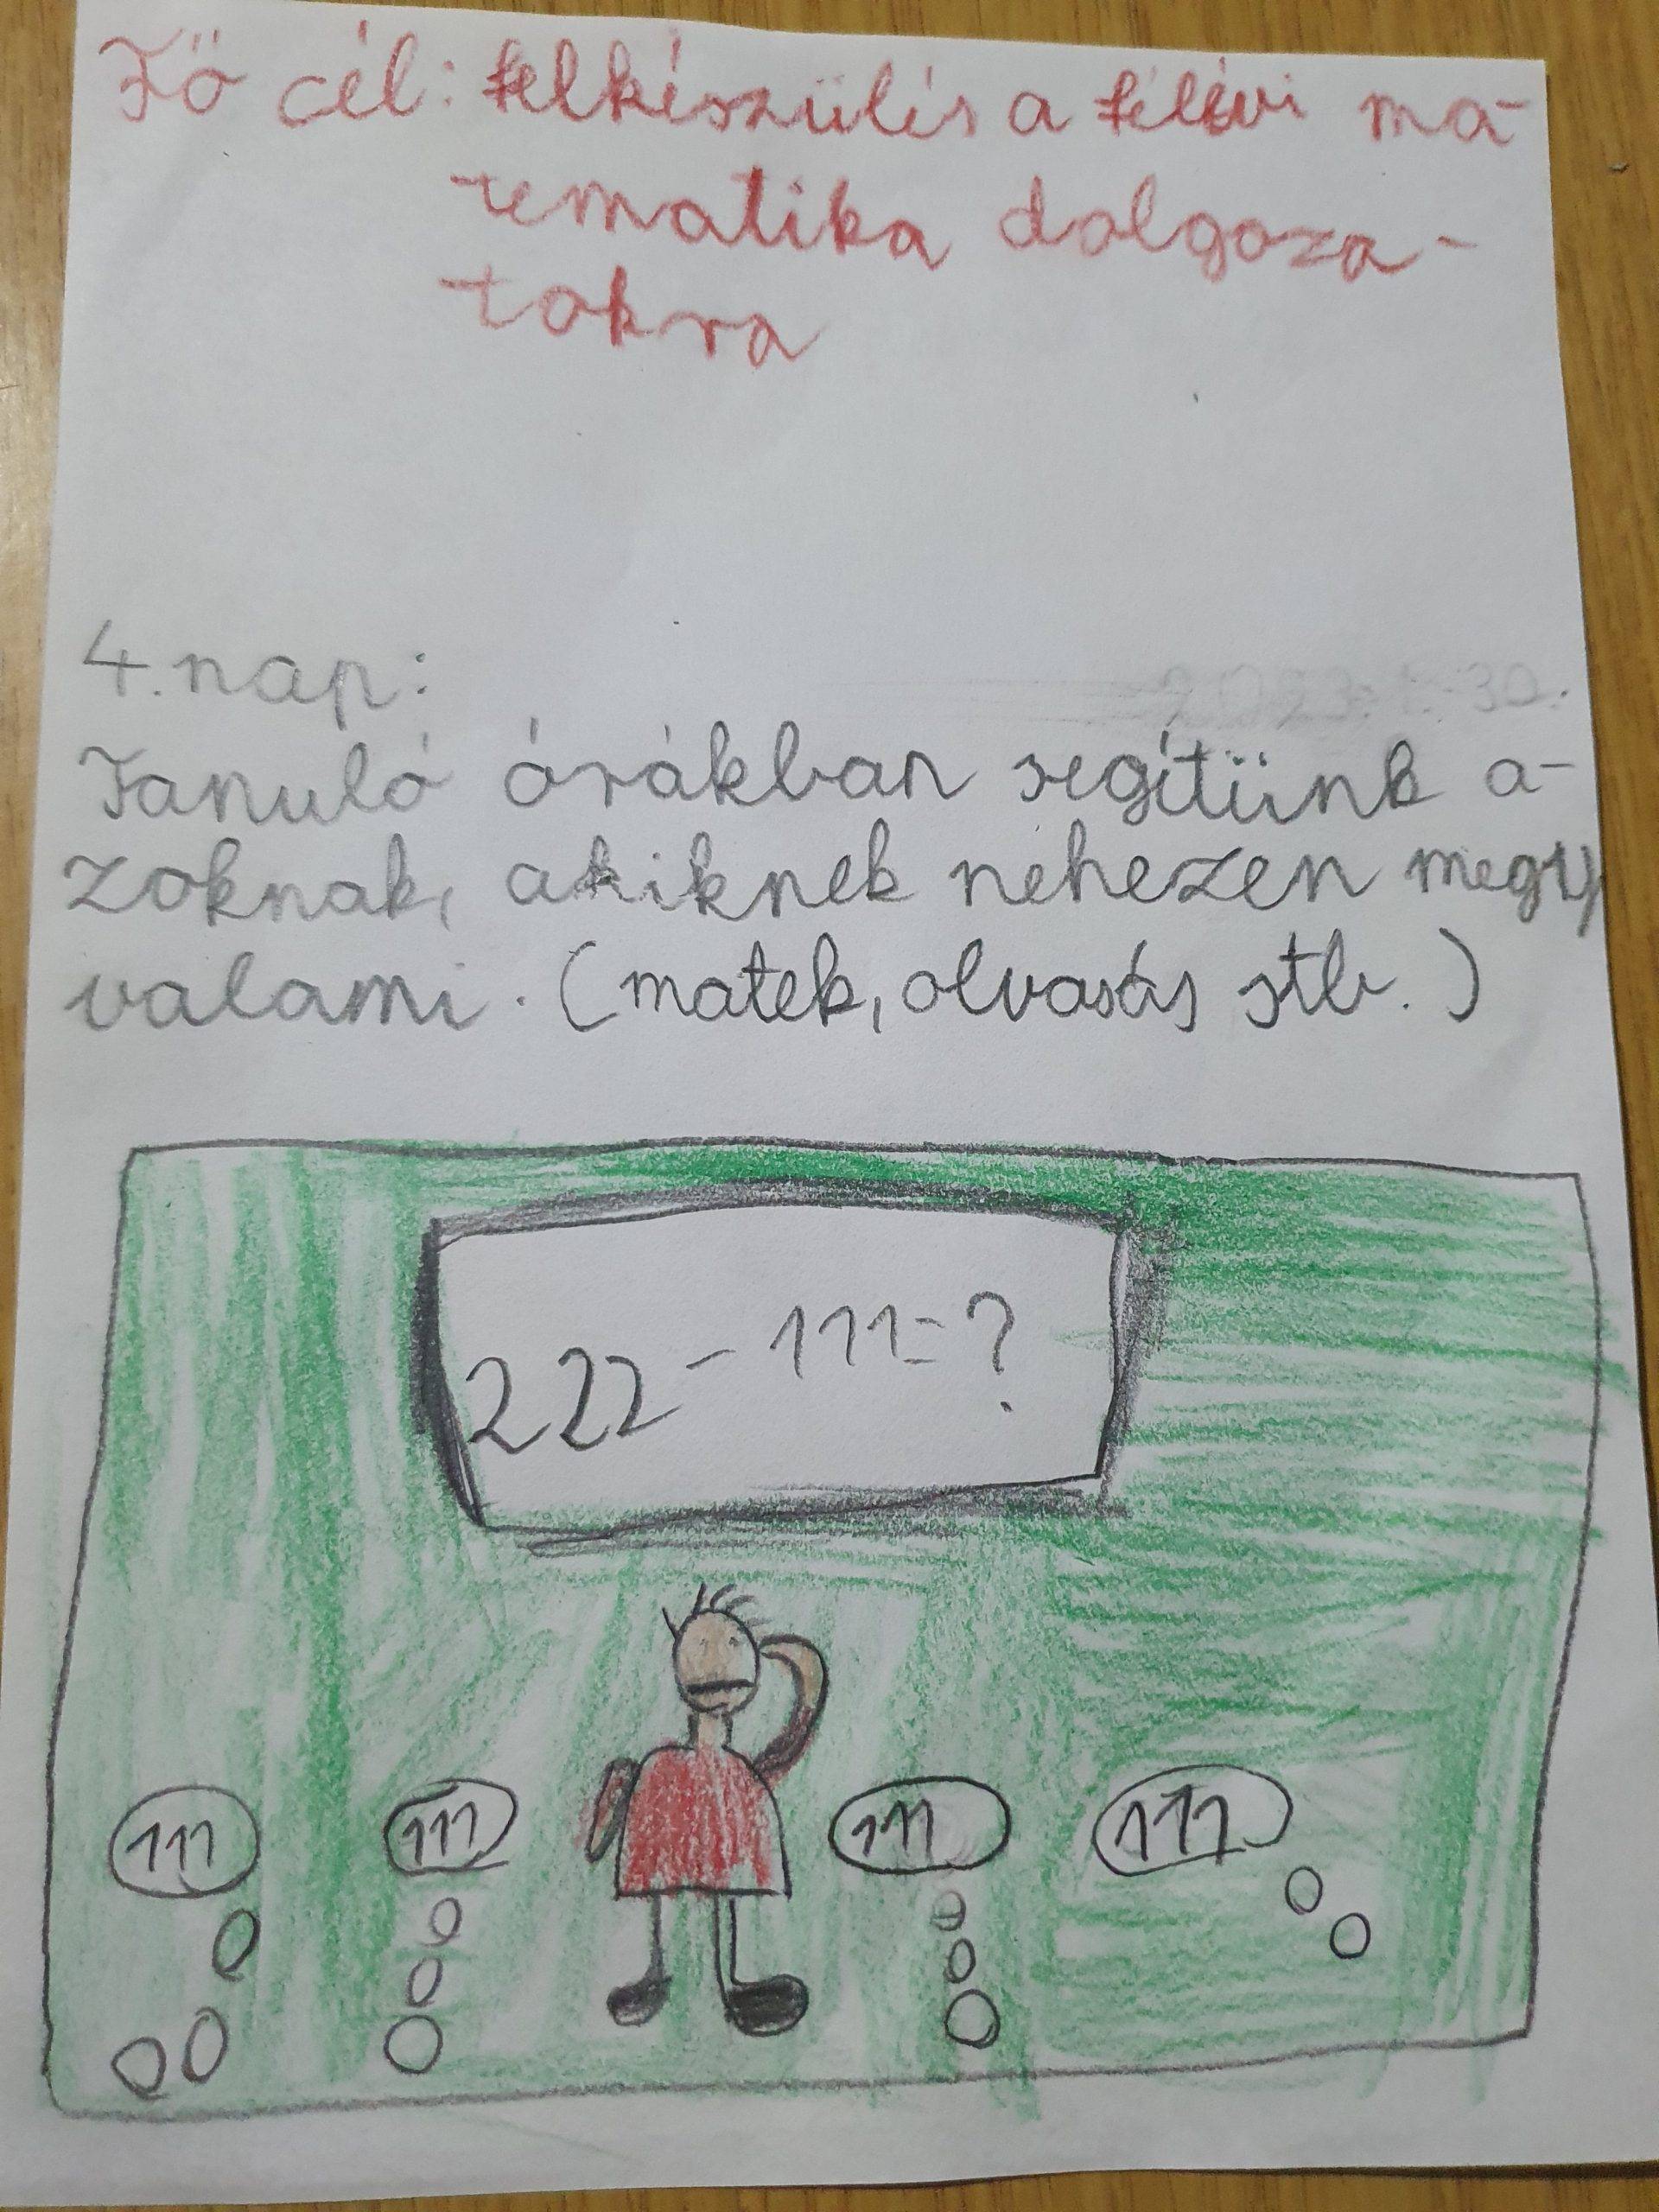 Fő cél: felkészülés a félévi ma-
tematika dolgoza-
tokra
4. nap:
2023. 1. 30.
Tanuló órákban segítünk a-
zoknak, akiknek nehezen megy
valami. (matek, olvasás stb.)
222 - 111 = ?
111 111 111 111